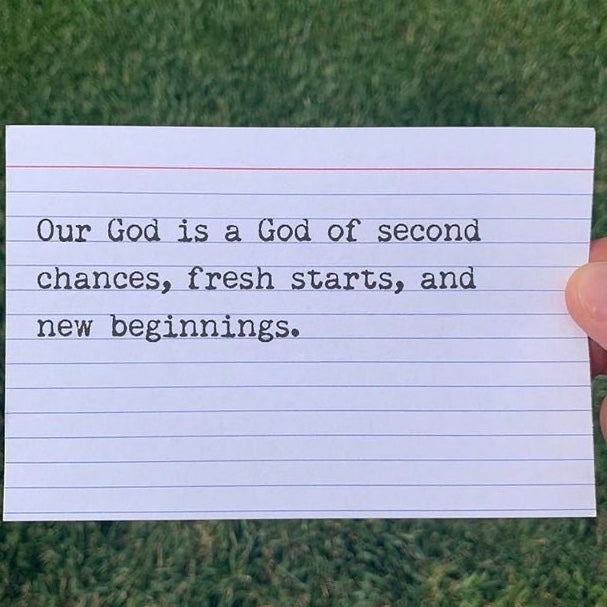 Our God is a God of second
chances, fresh starts, and
new beginnings.